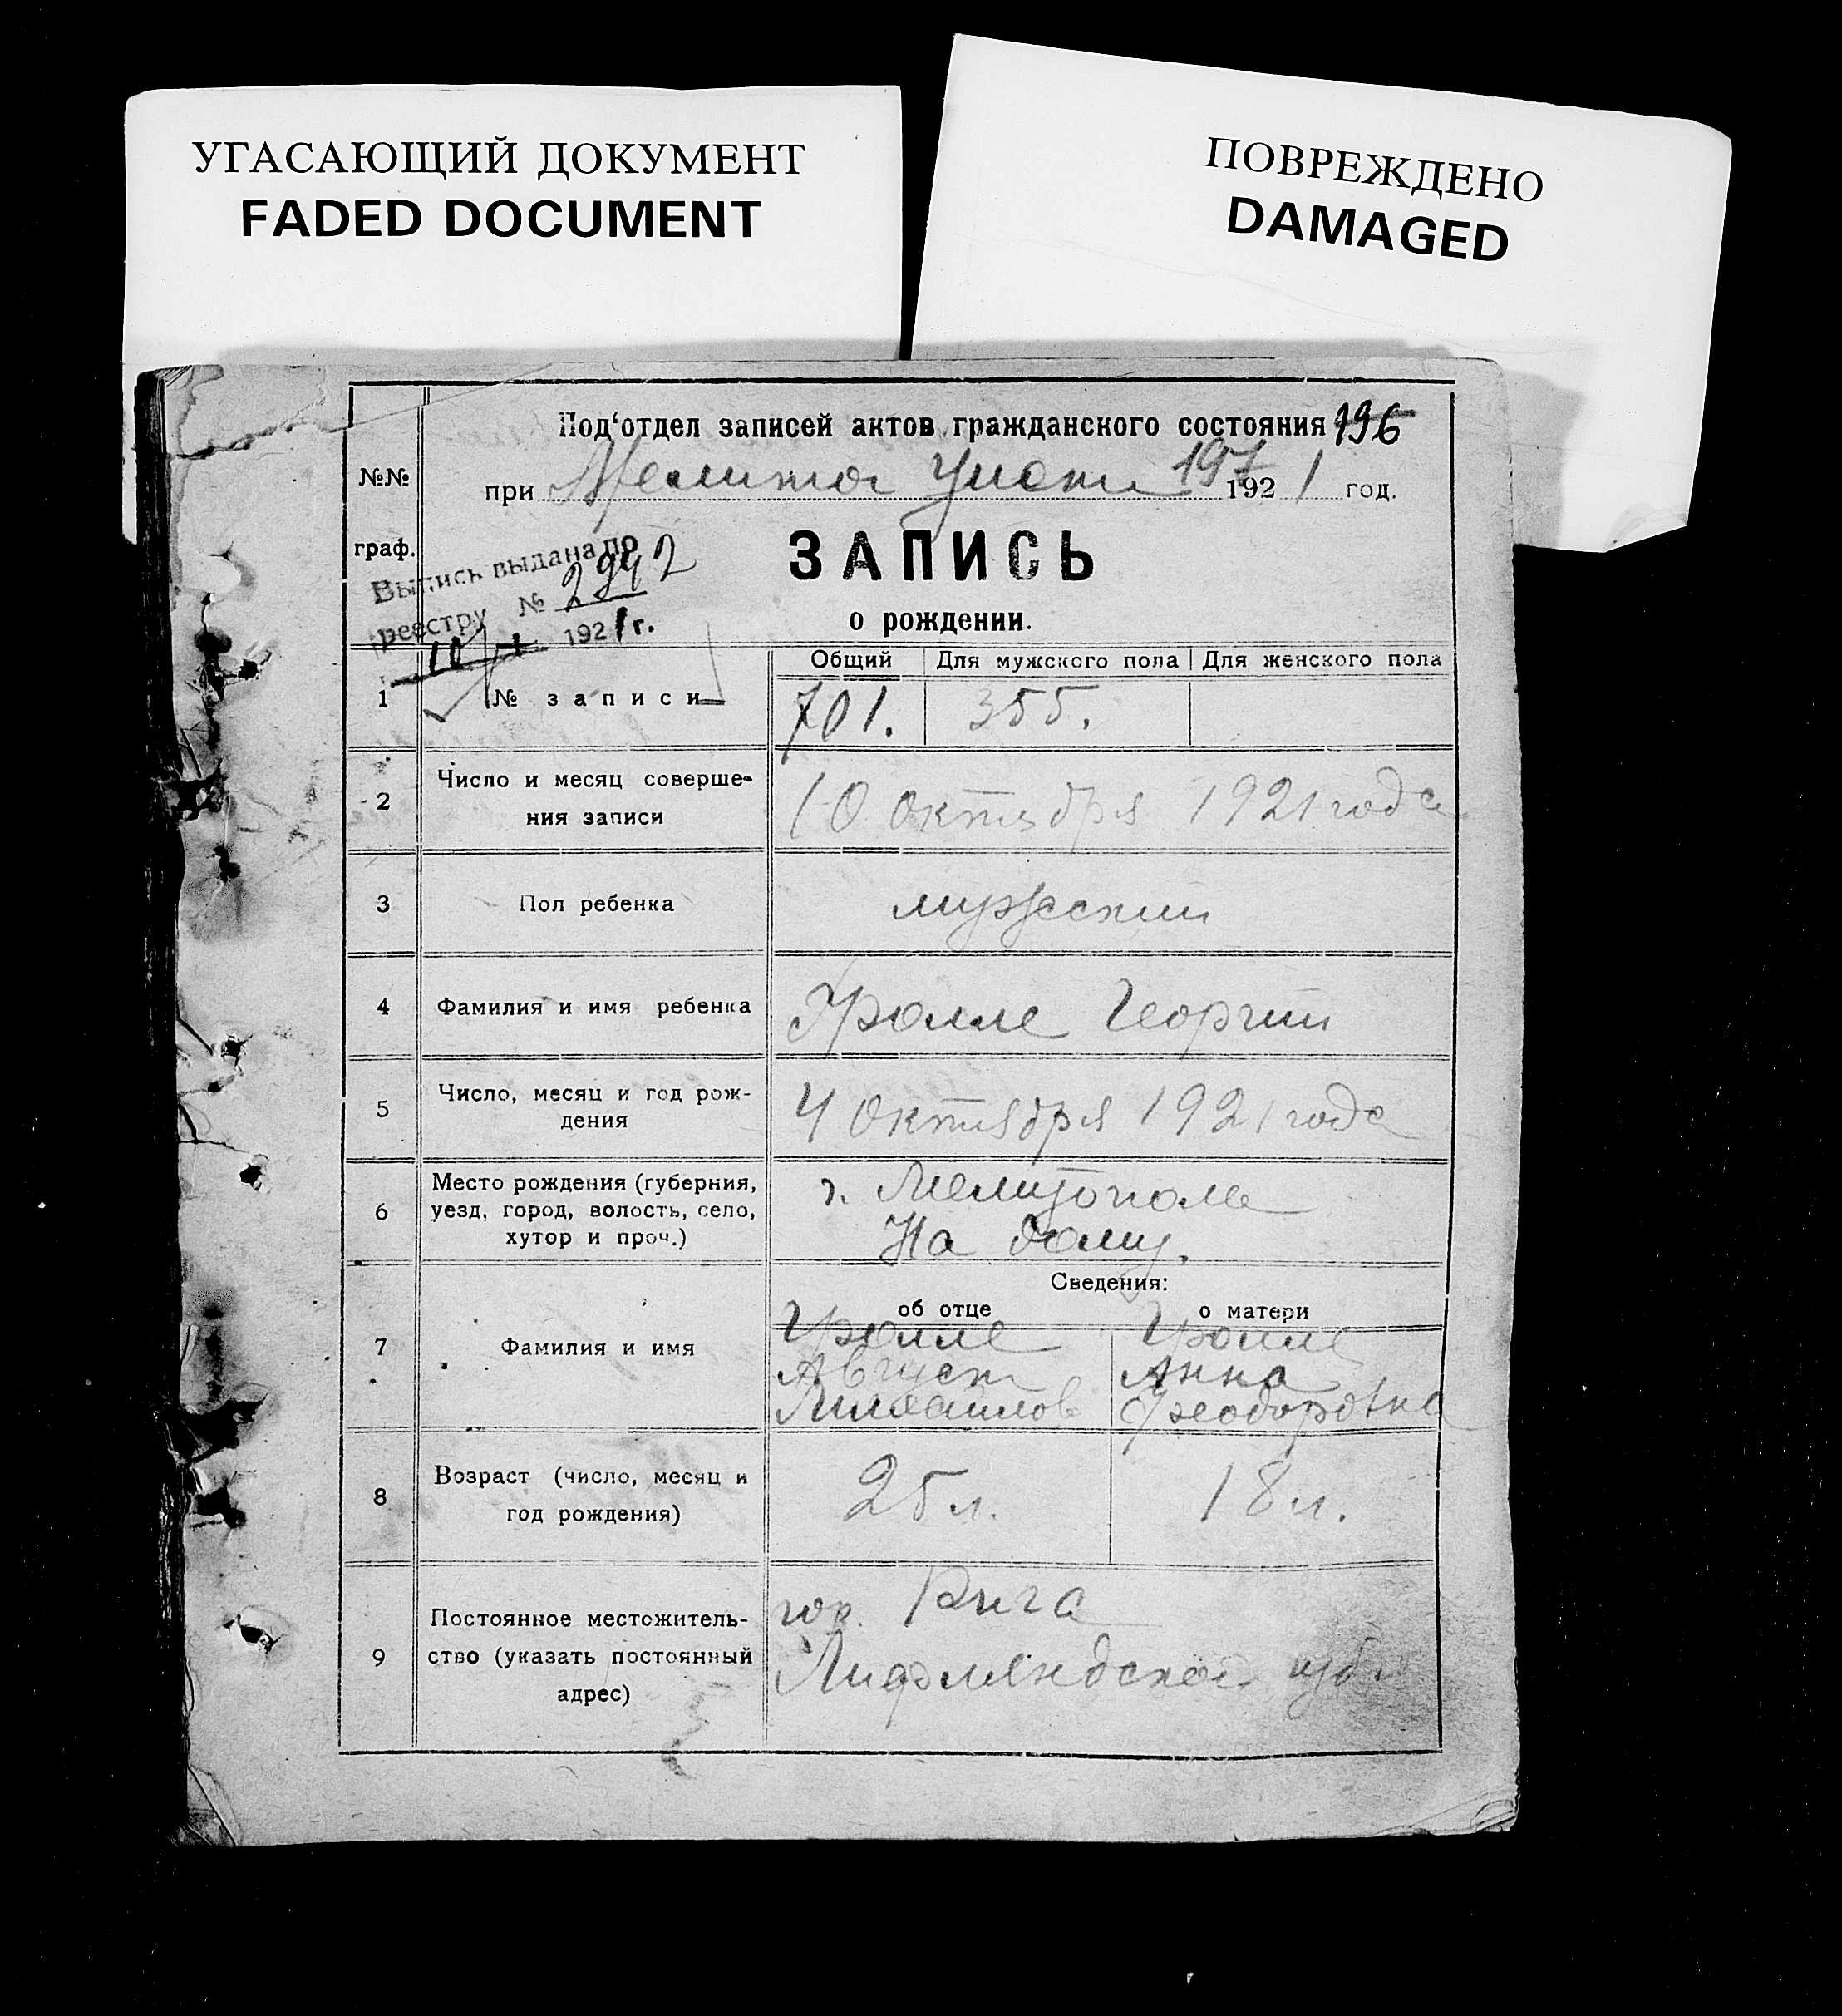 УГАСАЮЩИЙ ДОКУМЕНТ
FADED DOCUMENT
ПОВРЕЖДЕНО
DAMAGED
Под'отдел записей актов гражданского состояния 196
197
при 1921 год.
№№
граф.
Выпись выдана по
реестру № 2942
10/X 1921 г.
ЗАПИСЬ
о рождении.
Общий Для мужского пола Для женского пола
1 № записи 701. 355.
2 Число и месяц соверше-
ния записи
10 октября 1921 года
3 Пол ребенка мужеский
4 Фамилия и имя ребенка Гролле Георгий
5 Число, месяц и год рож-
дения
4 октября 1921 года
6 Место рождения (губерния,
уезд, город, волость, село,
хутор и проч.)
г. Мелитополе
На дому.
Сведения:
об отце о матери
7 Фамилия и имя
Гролле Гролле
Август Анна
Михайлов Феодоровна
8 Возраст (число, месяц и
год рождения)
25 л. 18 л.
9 Постоянное местожитель-
ство (указать постоянный
адрес)
гор. Рига
Лифляндской губ.